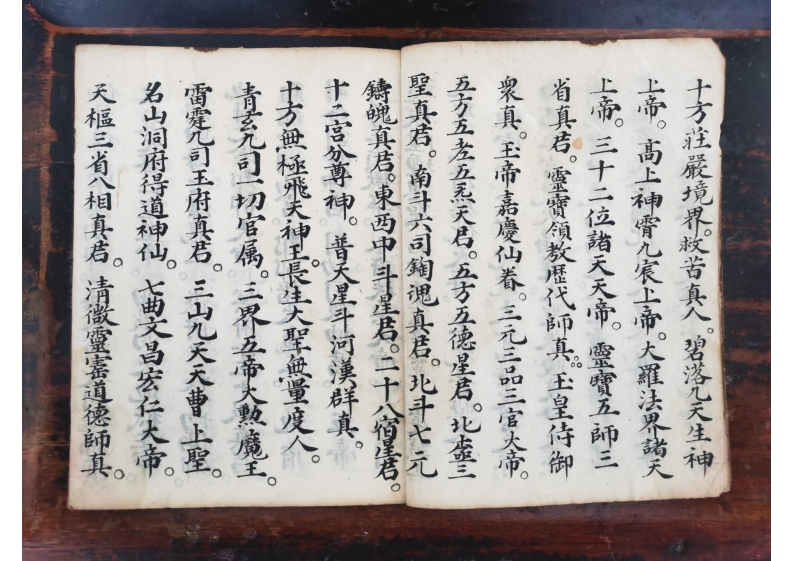 十方莊嚴境界。救苦真人。碧落九天生神
上帝。高上神霄九宸上帝。大羅法界諸天
上帝。三十二位諸天天帝。靈寶五師三
省真君。靈寶領教歷代師真。玉皇侍御
衆真。玉帝嘉慶仙眷。三元三品三官大帝。
五方五老五炁天君。五方五德星君。北三
聖真君。南斗六司鍧魂真君。北斗七元
鑄魄真君。東西中斗星君。二十八宿星君。
十二宮分尊神。普天星斗河漢群真。
十方無極飛天神王長生大聖無量度人。
青玄九司一切官属。三界五帝大勲魔王。
雷霆九司玉府真君。三山九天天曹上聖。
名山洞府得道神仙。七曲文昌宏仁大帝
天樞三省八相真君。清微靈寳道德師真。